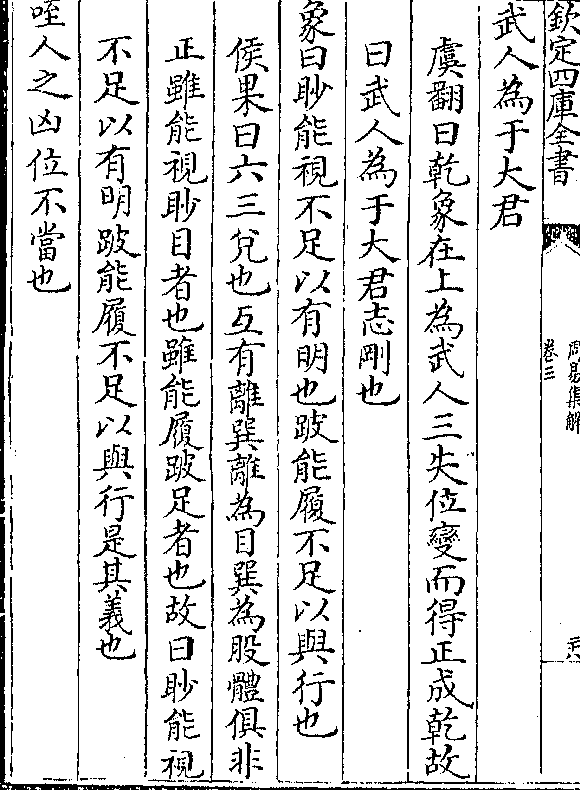 欽定四庫全書
周易集解
卷三
武人為于大君
虞翻曰乾象在上為武人三失位變而得正成乾故
曰武人為于大君志剛也
象曰眇能視不足以有明也跛能履不足以與行也
侯果曰六三兌也互有離巽離為目巽為股體俱非
正雖能視眇目者也雖能履跛足者也故曰眇能視
不足以有明跛能履不足以與行是其義也
咥人之凶位不當也